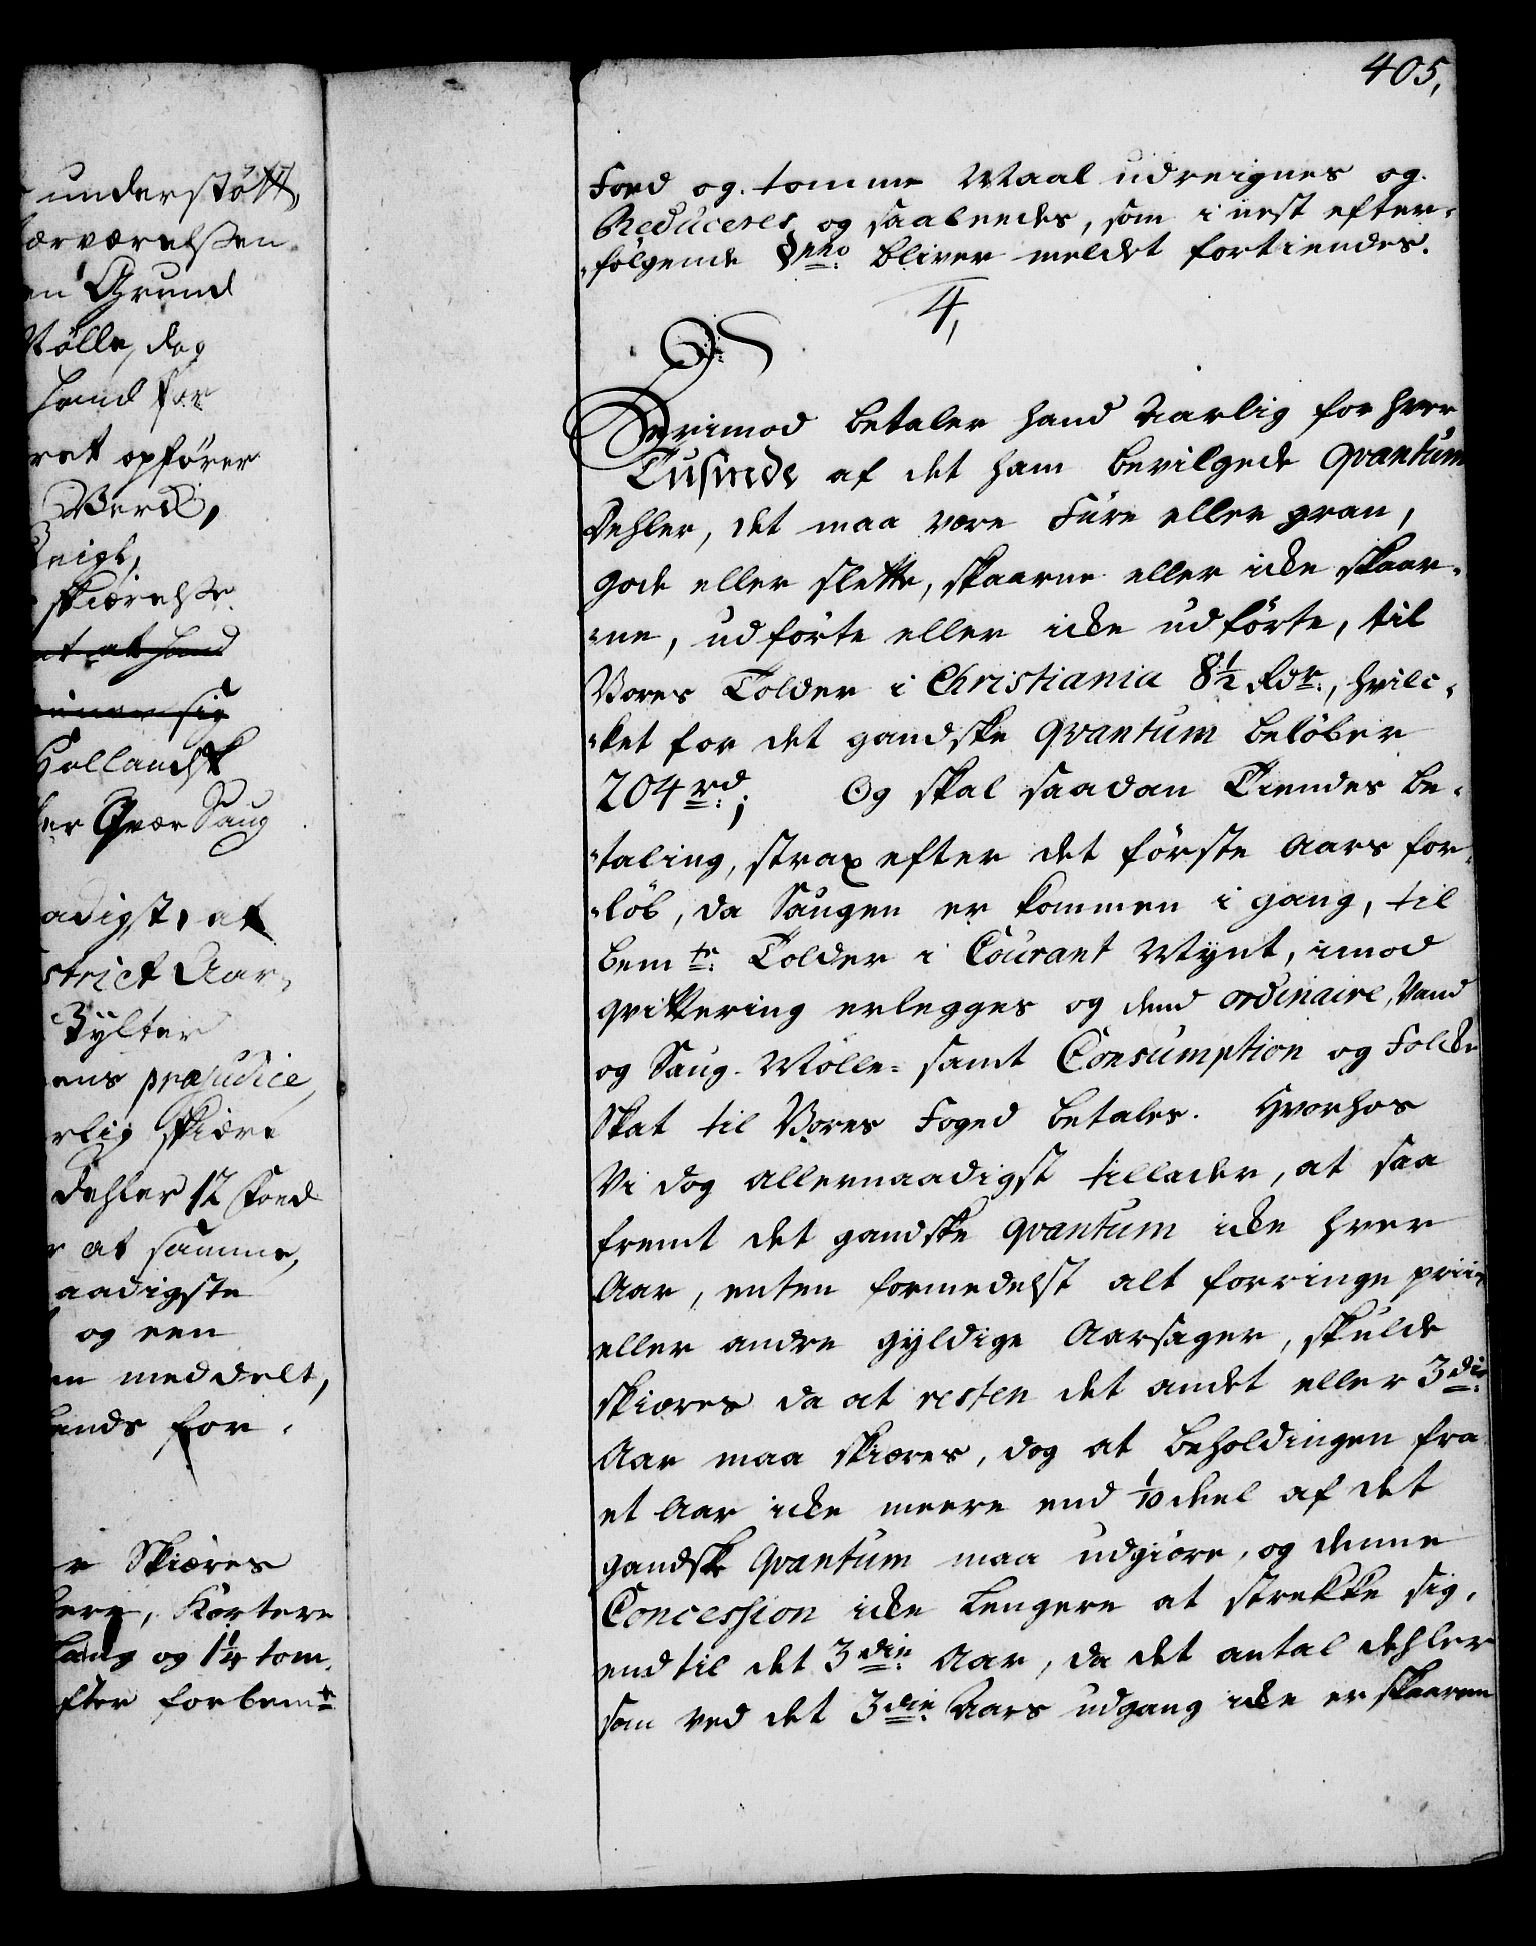 405,
understøtt,
Nærværelssen
en Grund
Mølle, dog
hand for
ret opfører
Werck,
Skiærelsse
at hand
sig
Hollandsk
ler Qvær Saug
aadigst, at
strict Aar-
Tylter
ens præjudice,
rlig skiære
dehler 12 Foed
r at samme,
aadigste
og een
en meddelt,
lends for-
r Skiæres
Kortere
lang og 1 1/4 tom,
fter forbemte
Foed og tomme Maal udreignes og
Reduceres, og saaleedes, som i nest efter-
-følgende §pho bliver meldet fortiendes.
4,
Derimod betaler hand Aarlig for hver
Tusinde af det ham bevilgede Qvantum
Dehler, det maa være Füre eller gran,
gode eller slette, skaarne eller icke skaar-
-ne, udførte eller icke udførte, til
Vores Tolder i Christiania 8 1/2 Rdr:, hvilc-
-ket for det gandske Qvantum beløber
204 rd; Og skal saadan Tiendes be-
-taling, strax efter det første Aars for-
-løb, da Saugen er kommen i gang, til
bemte Tolder i Courant Mynt, imod
qvittering erlegges og dend ordinaire, Vand
og Saug-Mølle- samt Consumption og Folcke
Skat til Vores Foged betales. Hvorhos
Vi dog allernaadigst tillader, at saa
fremt det gandske qvantum icke hver
Aar, enten formedelst alt forringe priis
eller andre gyldige Aarsager, skulde
skiæres da at resten det andet eller 3die
Aar maa skiæres, dog at beholdingen fra
et Aar icke meere end 1/10 deel af det
gandske Qvantum maa udgiøre, og denne
Concession icke længere at strekke sig,
end til det 3die Aar, da det antal dehler
som ved det 3die Aars udgang icke er skaaren